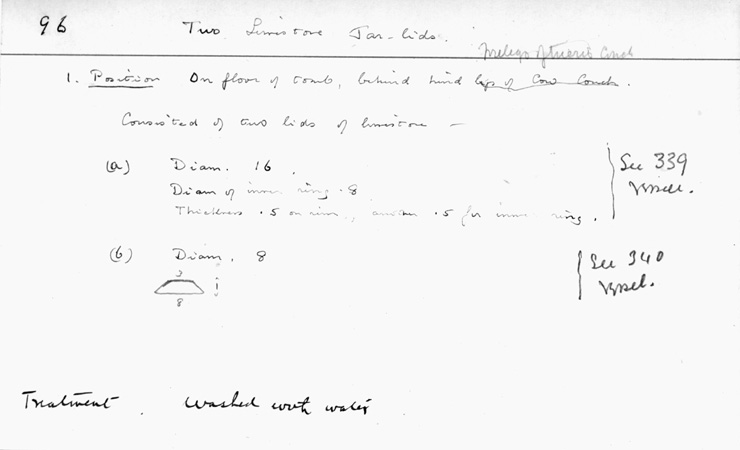 96 Two Limestone Jar-lids.
1. Position On floor of tomb, behind hind legs of Cow Couch.
Consisted of two lids of limestone —
(a) Diam. 16. See 339
Diam of inner ring .8 Vessel.
Thickness .5 on rim, another .5 for inner ring.
(b) Diam. 8 See 340
3 Vessel.
8
Treatment. Washed with water